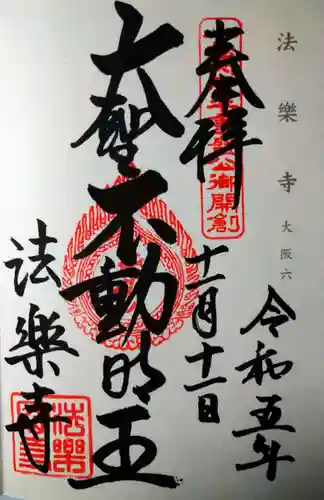 法樂寺 大阪六
令和五年
十一月十一日
奉拝
公御開創
大聖不動明王
法樂寺
法樂寺印